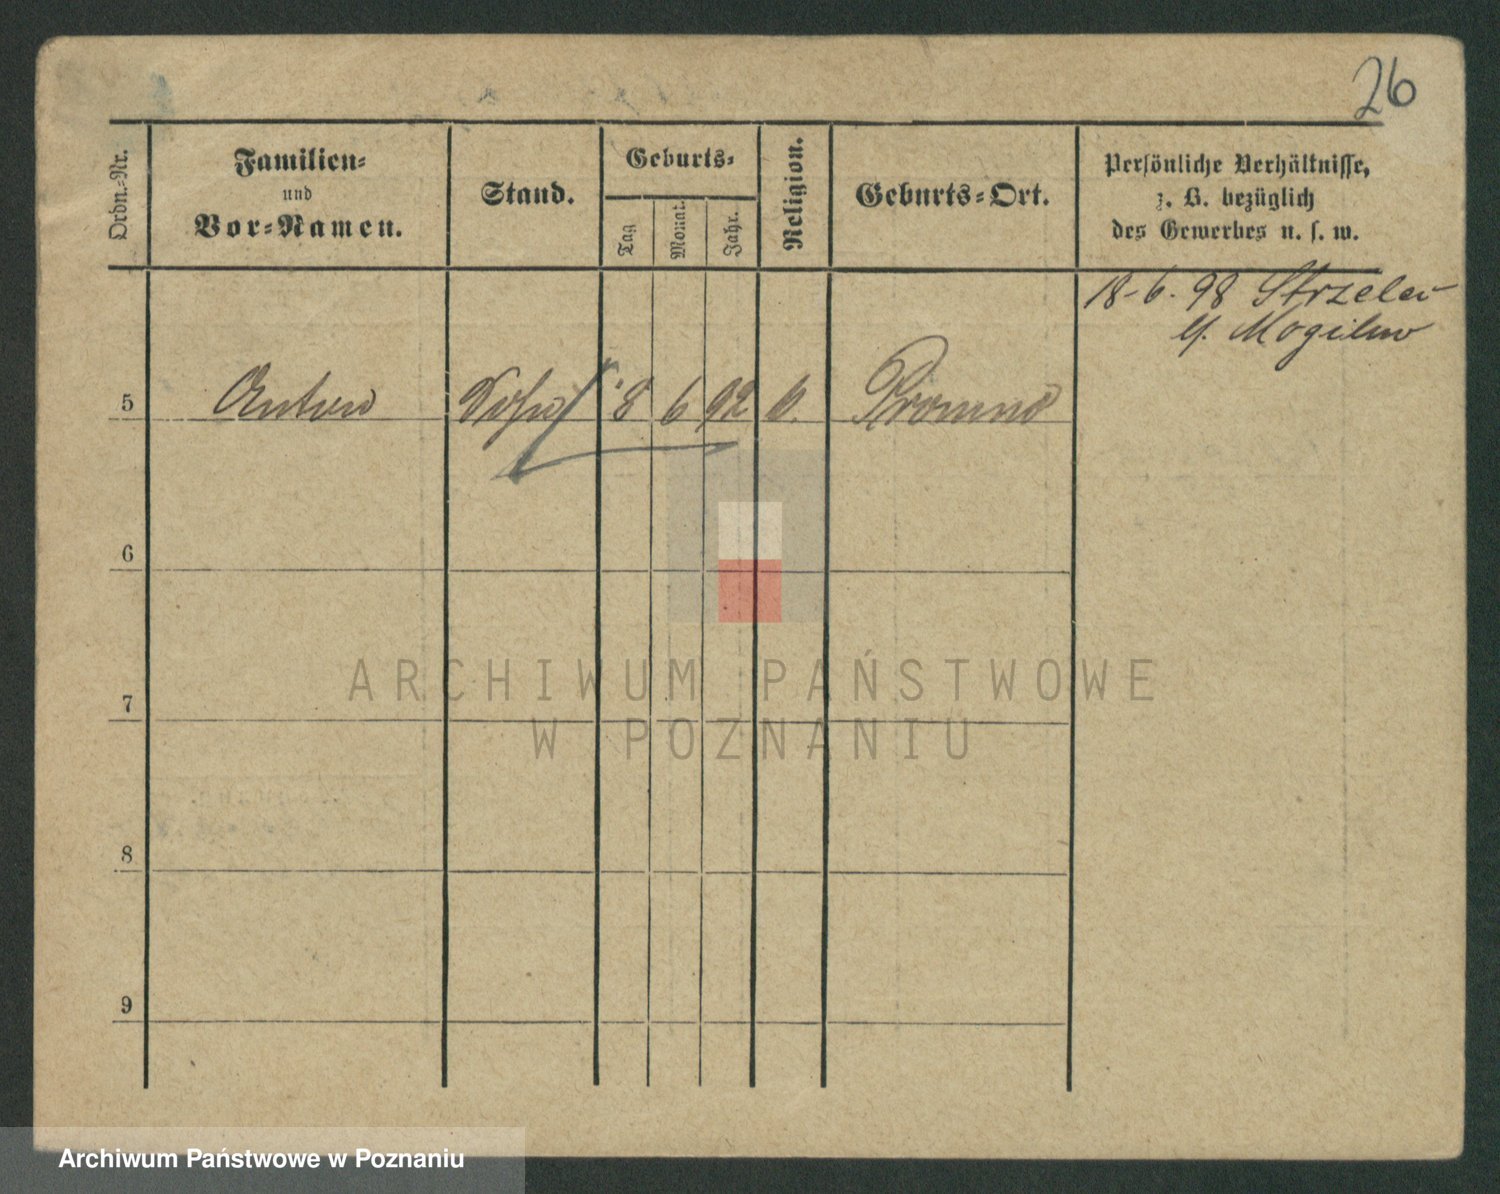 26
Ordn.-Nr.
Familien-
und
Vor-Namen.
Stand.
Geburts-
Tag
Monat.
Jahr.
Religion.
Geburts-Ort.
Persönliche Verhältnisse,
z. B. bezüglich
des Gewerbes u. s. w.
18-6.98 Strzelce
Mogilno
5 Anton Sohn 8 6 92 k. Promno
6
7
8
9
ARCHIWUM PAŃSTWOWE
W POZNANIU
Archiwum Państwowe w Poznaniu